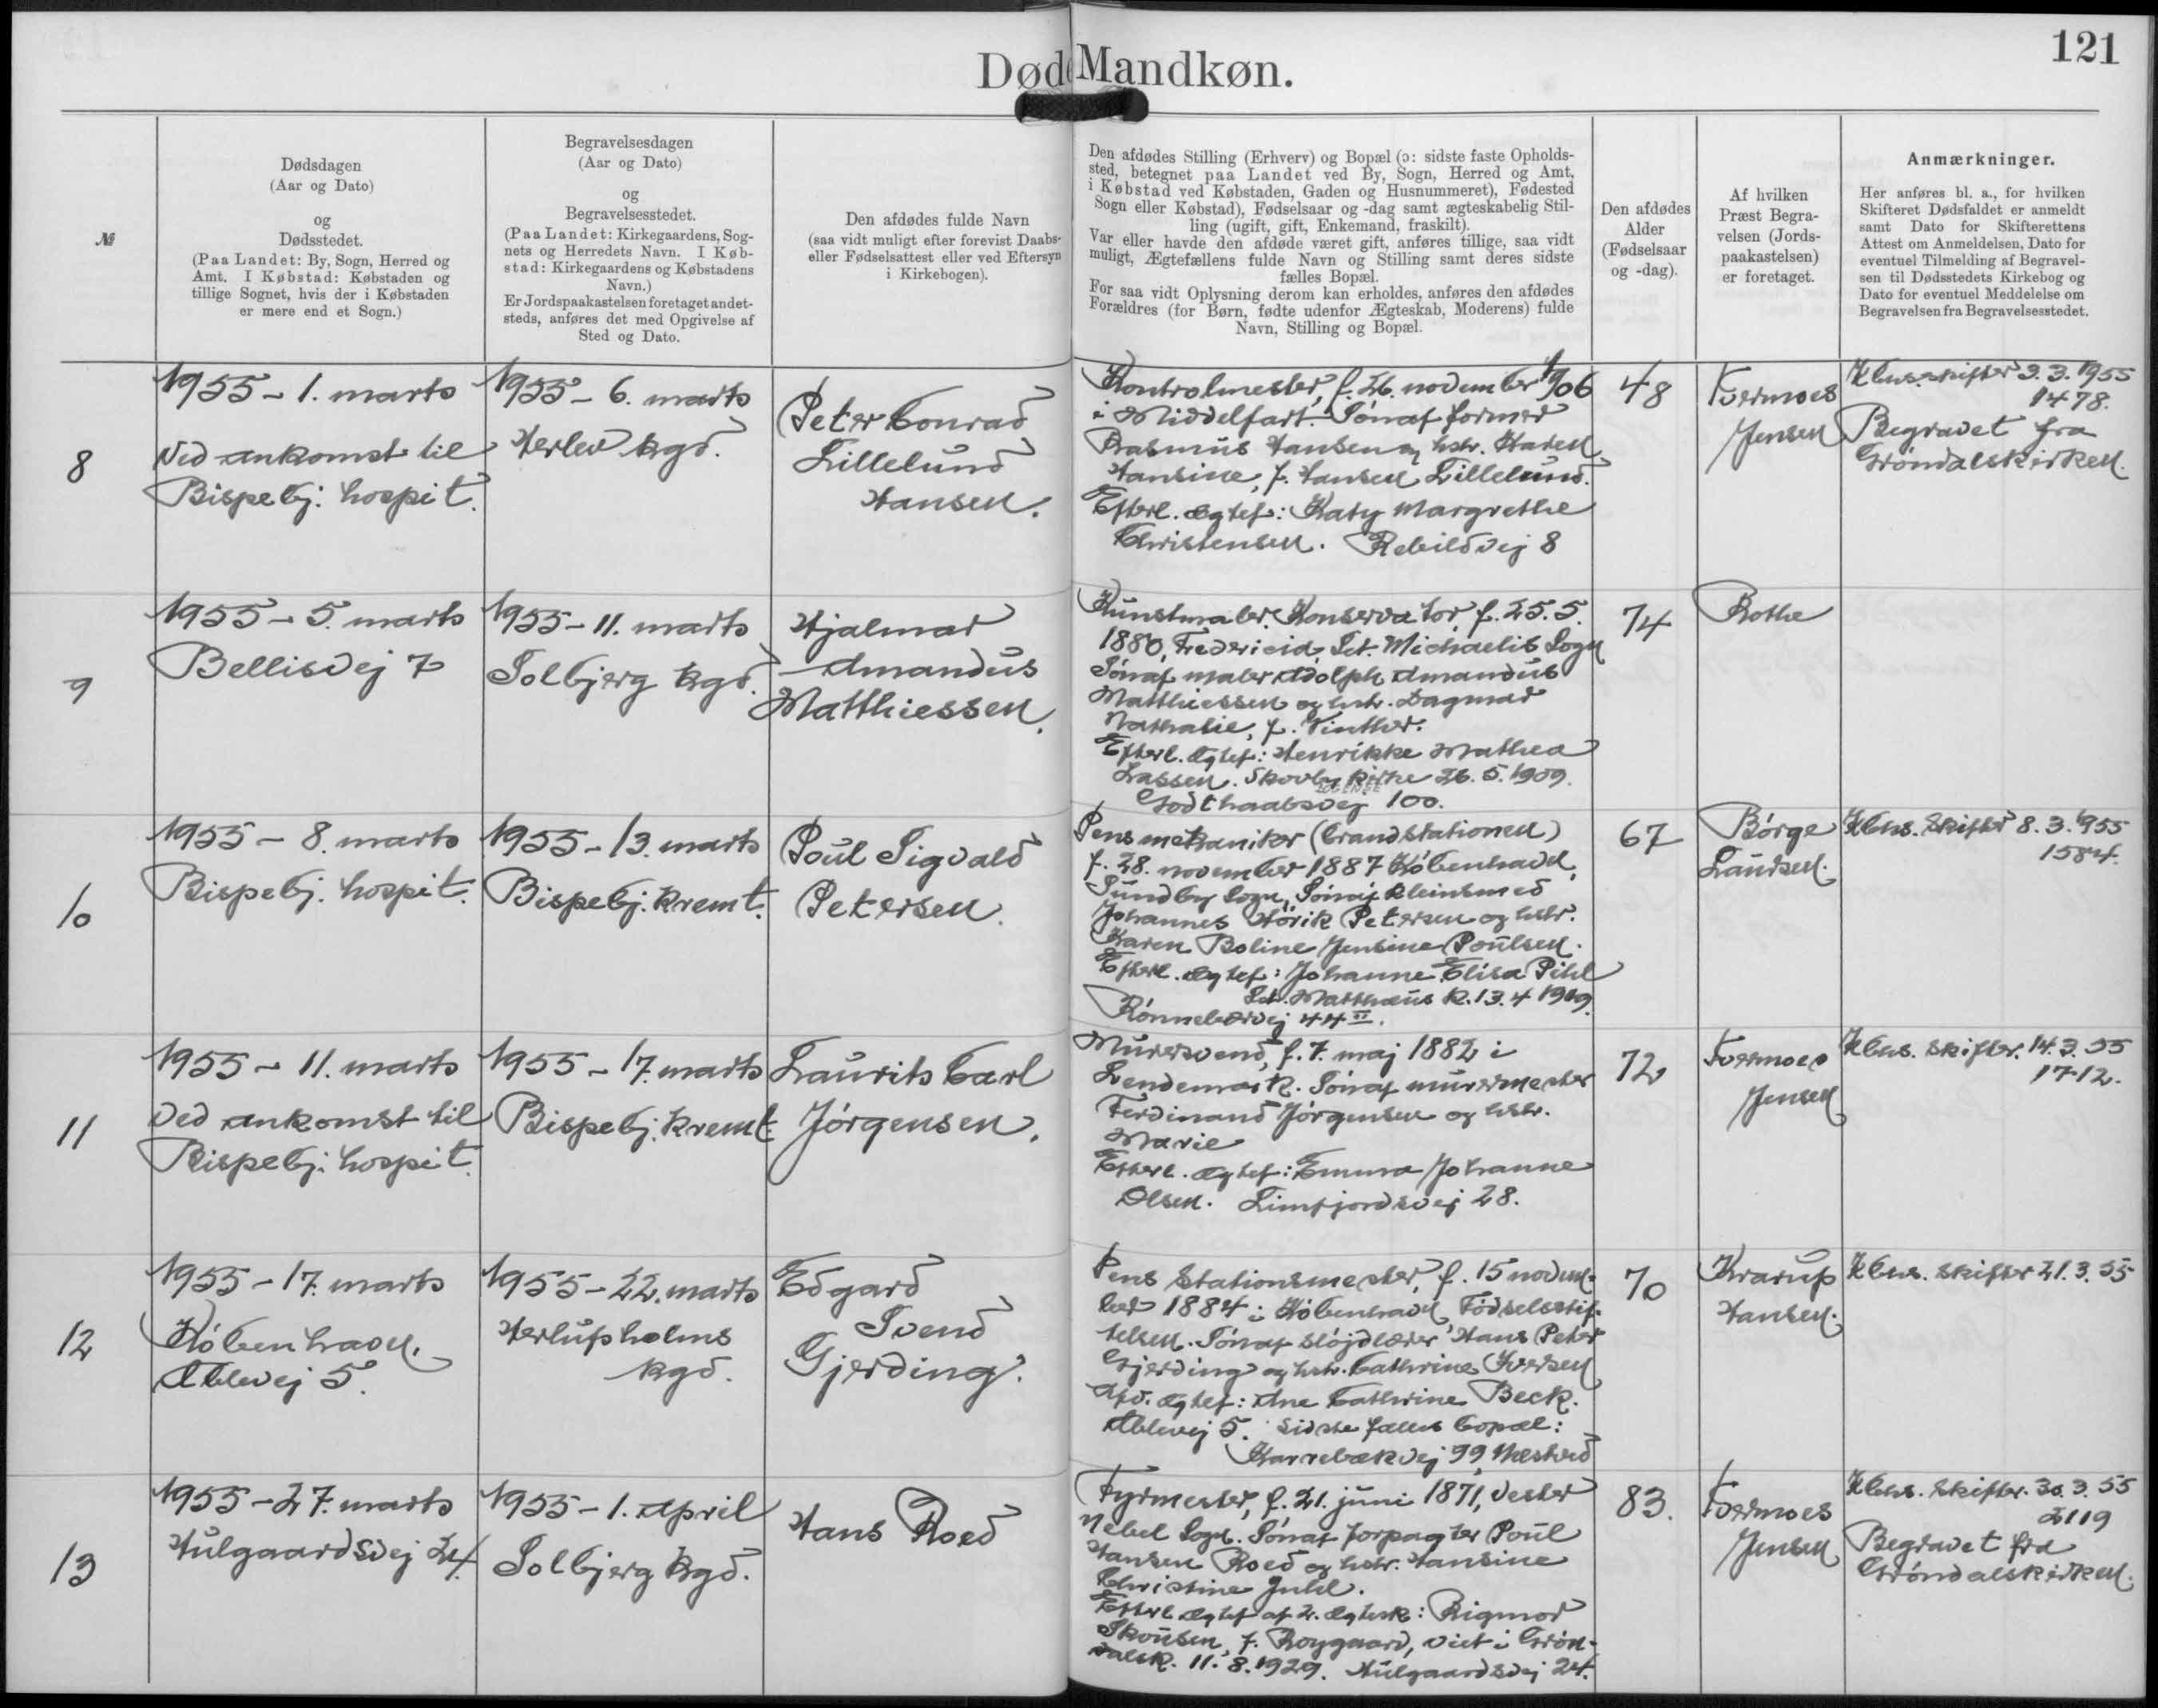 121
Døde Mandkøn.
№
Dødsdagen
(Aar og Dato)
og
Dødsstedet.
(Paa Landet: By, Sogn, Herred og
Amt. I Købstad: Købstaden og
tillige Sognet, hvis der i Købstaden
er mere end et Sogn.)
Begravelsesdagen
(Aar og Dato)
og
Begravelsesstedet.
(Paa Landet: Kirkegaardens, Sog-
nets og Herredets Navn. I Køb-
stad: Kirkegaardens og Købstadens
Navn.)
Er Jordspaakastelsen foretaget andet-
steds, anføres det med Opgivelse af
Sted og Dato.
Den afdødes fulde Navn
(saa vidt muligt efter forevist Daabs-
eller Fødselsattest eller ved Eftersyn
i Kirkebogen).
Den afdødes Stilling (Erhverv) og Bopæl (ɔ: sidste faste Opholds-
sted, betegnet paa Landet ved By, Sogn, Herred og Amt,
i Købstad ved Købstaden, Gaden og Husnummeret), Fødested
Sogn eller Købstad), Fødselsaar og -dag samt ægteskabelig Stil-
ling (ugift, gift, Enkemand, fraskilt).
Var eller havde den afdøde været gift, anføres tillige, saa vidt
muligt, Ægtefællens fulde Navn og Stilling samt deres sidste
fælles Bopæl.
For saa vidt Oplysning derom kan erholdes, anføres den afdødes
Forældres (for Børn, fødte udenfor Ægteskab, Moderens) fulde
Navn, Stilling og Bopæl.
Den afdødes
Alder
(Fødselsaar
og -dag).
Af hvilken
Præst Begra-
velsen (Jords-
paakastelsen)
er foretaget.
Anmærkninger.
Her anføres bl. a., for hvilken
Skifteret Dødsfaldet er anmeldt
samt Dato for Skifterettens
Attest om Anmeldelsen, Dato for
eventuel Tilmelding af Begravel-
sen til Dødsstedets Kirkebog og
Dato for eventuel Meddelelse om
Begravelsen fra Begravelsesstedet.
8
1955 - 1. marts
Ved ankomst til
Bispebj. hospit.
1955 - 6. marts
Herlev kgd.
Peter Conrad
Lillelund
Hansen.
Kontrolmester, f. 26. november 1906
i Middelfart. Søn af former
Rasmus Hansen og hstr. Karen
Hansine, f. Hansen Lillelund.
Efterl. ægtef: Katy Margrethe
Christensen. Rebildvej 8
48
Fvermoes
Jensen
Kbhs. skifter 3.3.1955
1478.
Begravet fra
Grøndalskirken.
9
1955 - 5. marts
Bellisvej 7
1955 - 11. marts
Solbjerg kgd.
Hjalmar
Amandus
Matthiessen.
Kunstmaler. Konservator, f. 25.5.
1880, Fredericia, Sct. Michaelis Sogn
Søn af maler Adolph Amandus
Matthiessen og hstr. Dagmar
Nathalie, f. Vinther.
Efterl. ægtef: Henrikke Mathea
Lassen. Skovby kirke 26.5.1909.
Godthaabsvej 100.
74
Rothe
10
1955 - 8. marts
Bispebj. hospit.
1955 - 13. marts
Bispebj. kremt.
Poul Sigvald
Petersen.
Pens mekaniker (brandstationen)
f. 28. november 1887 København,
Sundby Sogn, Søn af kleinsmed
Johannes Hörik Petersen og hstr.
Karen Boline Jensine Poulsen.
Efterl. ægtef: Johanne Elisa Pihl
Sct. Matthæus k. 13.4 1909.
Rønnebærvej 44 II.
67
Børge
Laursen.
Kbhs. skifter 8.3.1955
1584.
11
1955 - 11. marts
Ved ankomst til
Bispebj. hospit.
1955 - 17. marts
Bispebj. kremt.
Laurits Carl
Jørgensen.
Murersvend, f. 7. maj 1882 i
Lendemark. Søn af murermester
Ferdinand Jørgensen og hstr.
Marie
Efterl. ægtef: Emma Johanne
Olsen. Limfjordsvej 28.
72
Fvermoes
Jensen
Kbhs. skifter. 14.3.55
1712.
12
1955 - 17. marts
København.
Æblevej 5.
1955 - 22. marts
Herlufsholms
kgd.
Edgard
Svend
Gjerding.
Pens Stationsmester, f. 15 novem-
ber 1884 i København, Fødselsstif-
telsen. Søn af sløjdlærer Hans Peter
Gjerding og hstr. Cathrine Iversen
Afd. ægtef: Ane Cathrine Beck.
Æblevej 5. Sidste fælles bopæl:
Karrebækvej 99, Næstved
70
Krarup
Hansen.
Kbhs. skifter 21.3.55
13
1955 - 27. marts
Hulgaardsvej 24.
1955 - 1. April
Solbjerg kgd.
Hans Roed
Fyrmester, f. 21. juni 1871, Vester
Nebel Sogn. Søn af forpagter Poul
Hansen Roed og hstr. Hansine
Christine Juhl.
Efterl. ægtef af 2. ægtesk: Rigmor
Skousen, f. Roygaard, viet i Grøn-
dalsk. 11.8.1929. Hulgaardsvej 24.
83.
Fvermoes
Jensen
Kbhs. skifter. 30.3.55
2119
Begravet fra
Grøndalskirken.